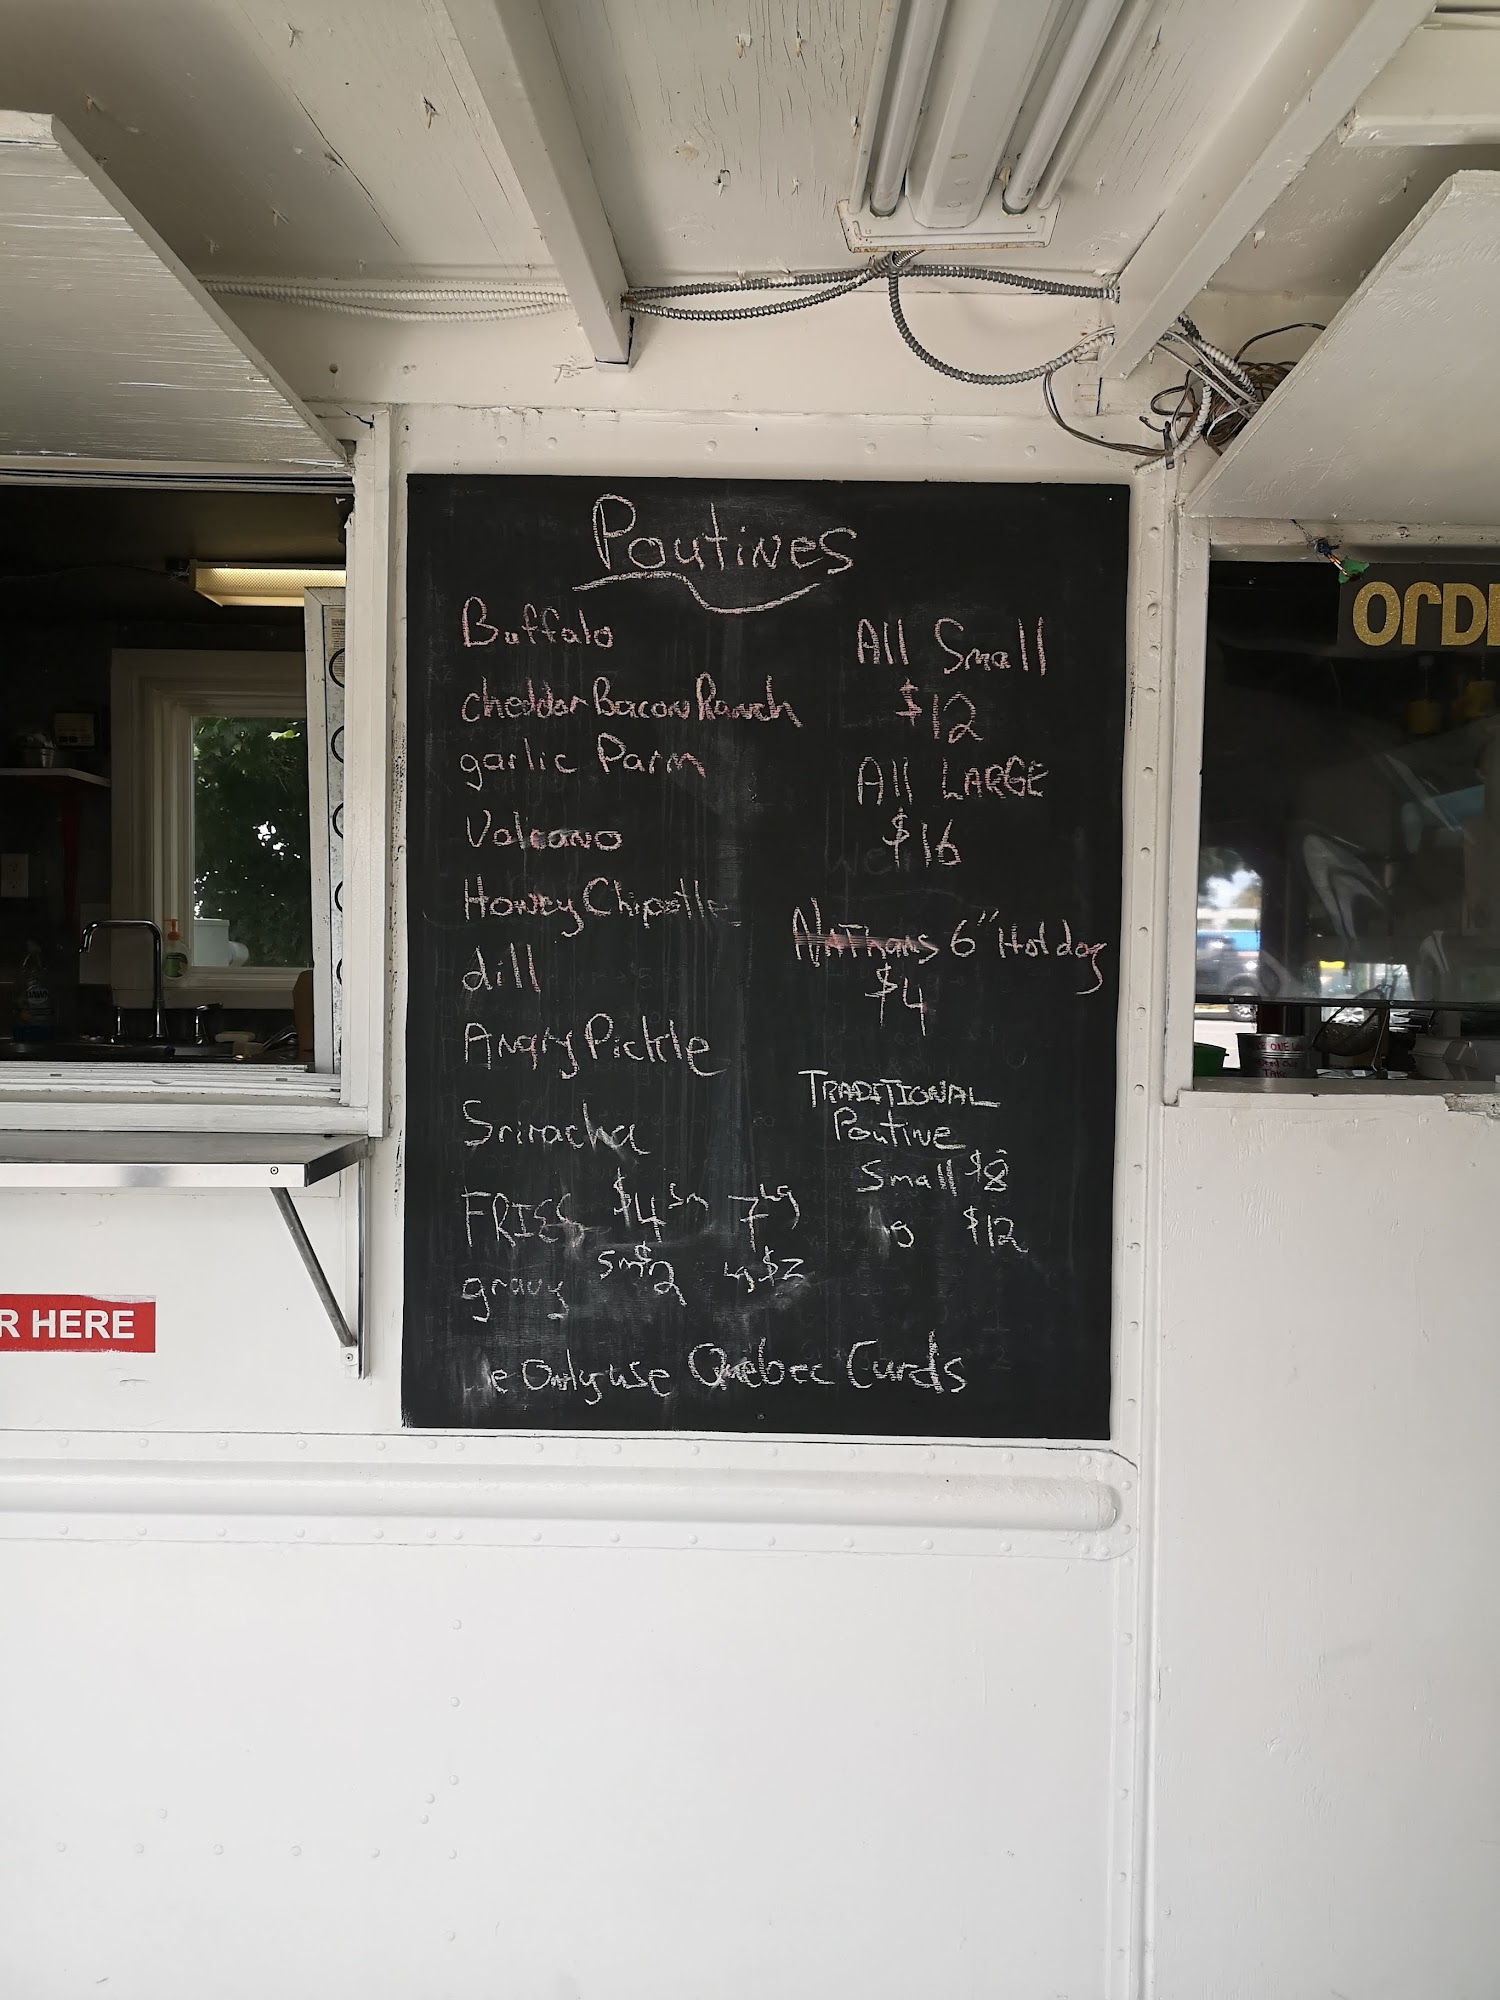 Poutines
Buffalo
cheddar Bacon Ranch
garlic Parm
Volcano
Honey Chipotle
dill
Angry Pickle
Sriracha
FRIES $4 sm 7 Lg
gravy sm $2 Lg $2
All Small
$12
All LARGE
$16
Nathans 6" Hot dog
$4
TRADITIONAL
Poutine
Small $8
Lg $12
We Only use Quebec Curds
R HERE
OrDE